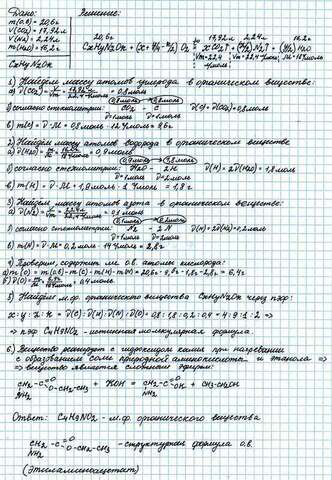 Дано:
Решение:
m(о.в) = 20,6г
V(CO2) = 17,92л
V(N2) = 2,24л
m(H2O) = 16,2г
CxHyNzOk
20,6г 17,92л 2,24л 16,2г
CxHyNzOk + (x + y/4 - k/2) O2 = xCO2↑ + (z/2)N2↑ + (y/2)H2O
1) Найдем массу атомов углерода в органическом веществе:
а) ν(CO2) = V/Vm = 17,92л/22,4л/моль = 0,8моль
0,8моль 0,8моль
б) согласно стехиометрии: CO2 - C ν(C) = ν(CO2) = 0,8моль
ν=1моль ν=1моль
в) m(C) = ν·M = 0,8моль · 12 г/моль = 9,6г
2) Найдем массу атомов водорода в органическом веществе
а) ν(H2O) = m/M = 16,2г/18г/моль = 0,9моль
б) согласно стехиометрии: H2O - 2H ν(H) = 2ν(H2O) = 1,8моль
ν=1моль ν=2моль
в) m(H) = ν·M = 1,8моль · 1 г/моль = 1,8г
3) Найдем массу атомов азота в органическом веществе:
а) ν(N2) = V/Vm = 2,24л/22,4л/моль = 0,1моль
0,1моль 0,2моль
б) согласно стехиометрии: N2 - 2N ν(N) = 2ν(N2) = 0,2моль
ν=1моль ν=2моль
в) m(N) = ν·M = 0,2моль · 14 г/моль = 2,8г
4) Проверим, содержит ли о.в. атомы кислорода:
а) m(O) = m(о.в) - m(C) - m(H) - m(N) = 20,6г - 9,6г - 1,8г - 2,8г = 6,4г
б) ν(O) = 0,4моль
5) Найдем м.ф. органического вещества CxHyNzOk через пзф:
x : y : z : k = ν(C) : ν(H) : ν(N) : ν(O) = 0,8 : 1,8 : 0,2 : 0,4 = 4 : 9 : 1 : 2 ⇒
⇒ пзф C4H9NO2 - истинная молекулярная формула.
6) Вещество реагирует с гидроксидом калия при нагревании
с образованием соли природной аминокислоты и этанола ⇒
⇒ вещество является сложным эфиром:
CH2-C=O O-CH2-CH3 + KOH = CH2-C=O OK + CH3-CH2OH
NH2 NH2
Ответ: C4H9NO2 - м.ф. органического вещества
CH2-C=O O-CH2-CH3 - структурная формула о.в.
NH2
(Этиламиноацетат)